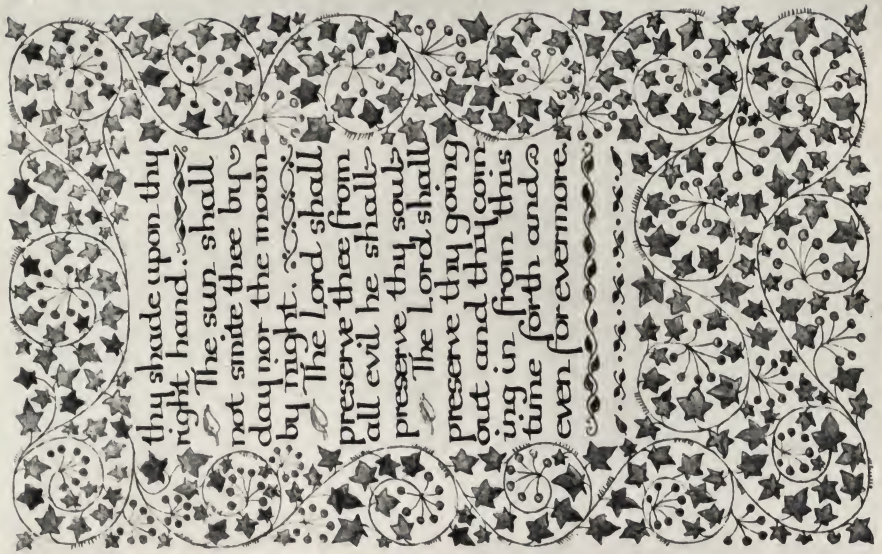 thy shade upon thy
right hand.
The sun shall
not smite thee by
day nor the moon
by night.
The Lord shall
preserve thee from
all evil he shall
preserve thy soul
The Lord shall
preserve thy going
out and thy com
ing in from this
time forth and
even for evermore.